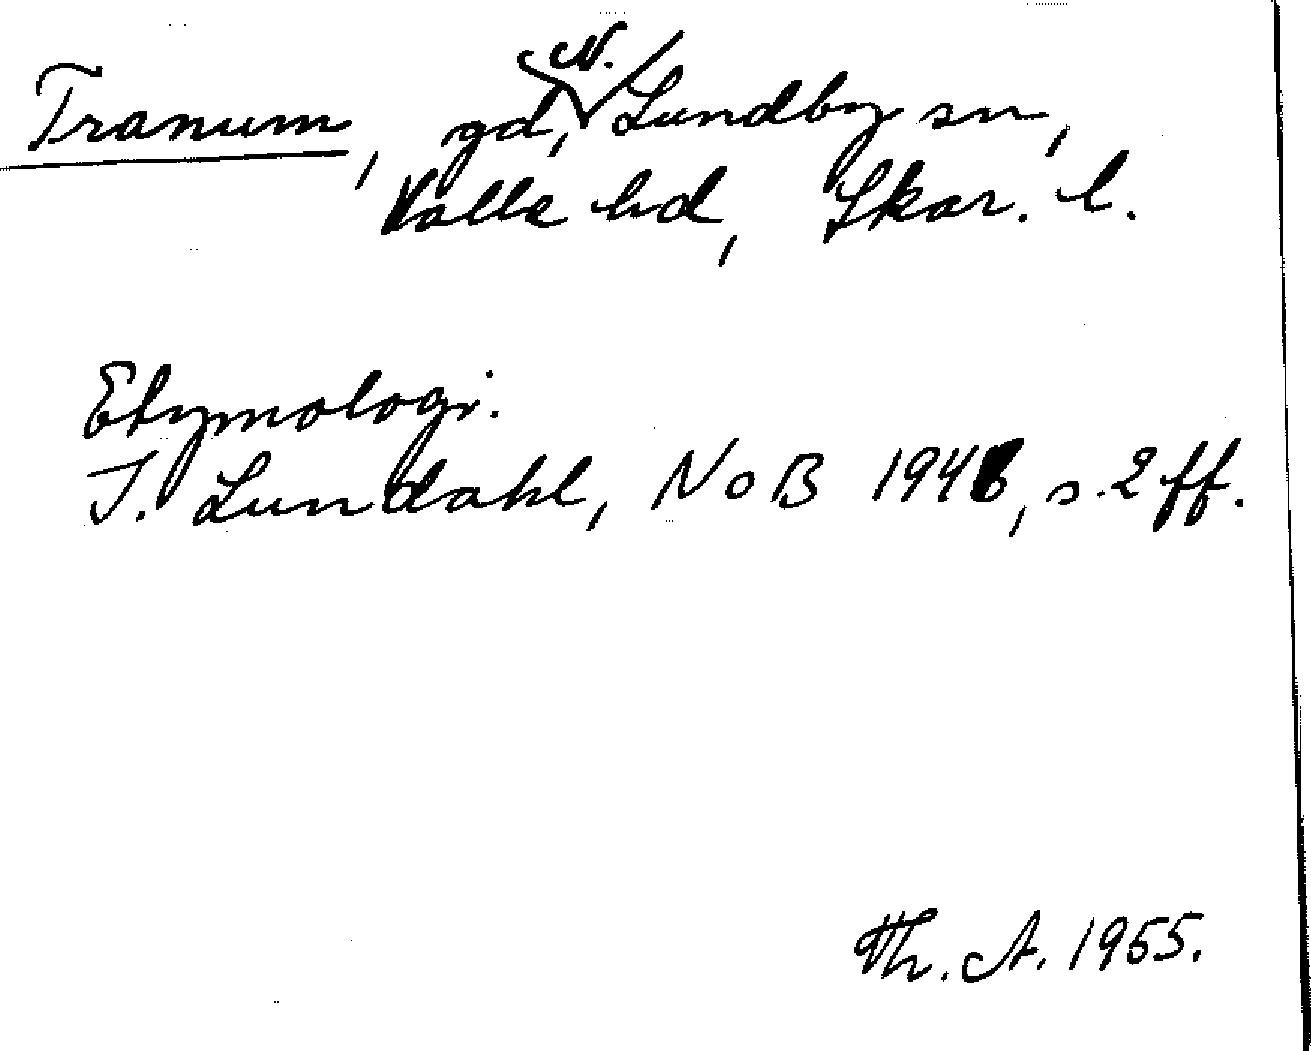 Tranum, gd, N. Lundby sn,
Valle hd, Skar. l.
Etymologi.
I. Lundahl, NoB 1946, s. 2 ff.
Th. A. 1955.